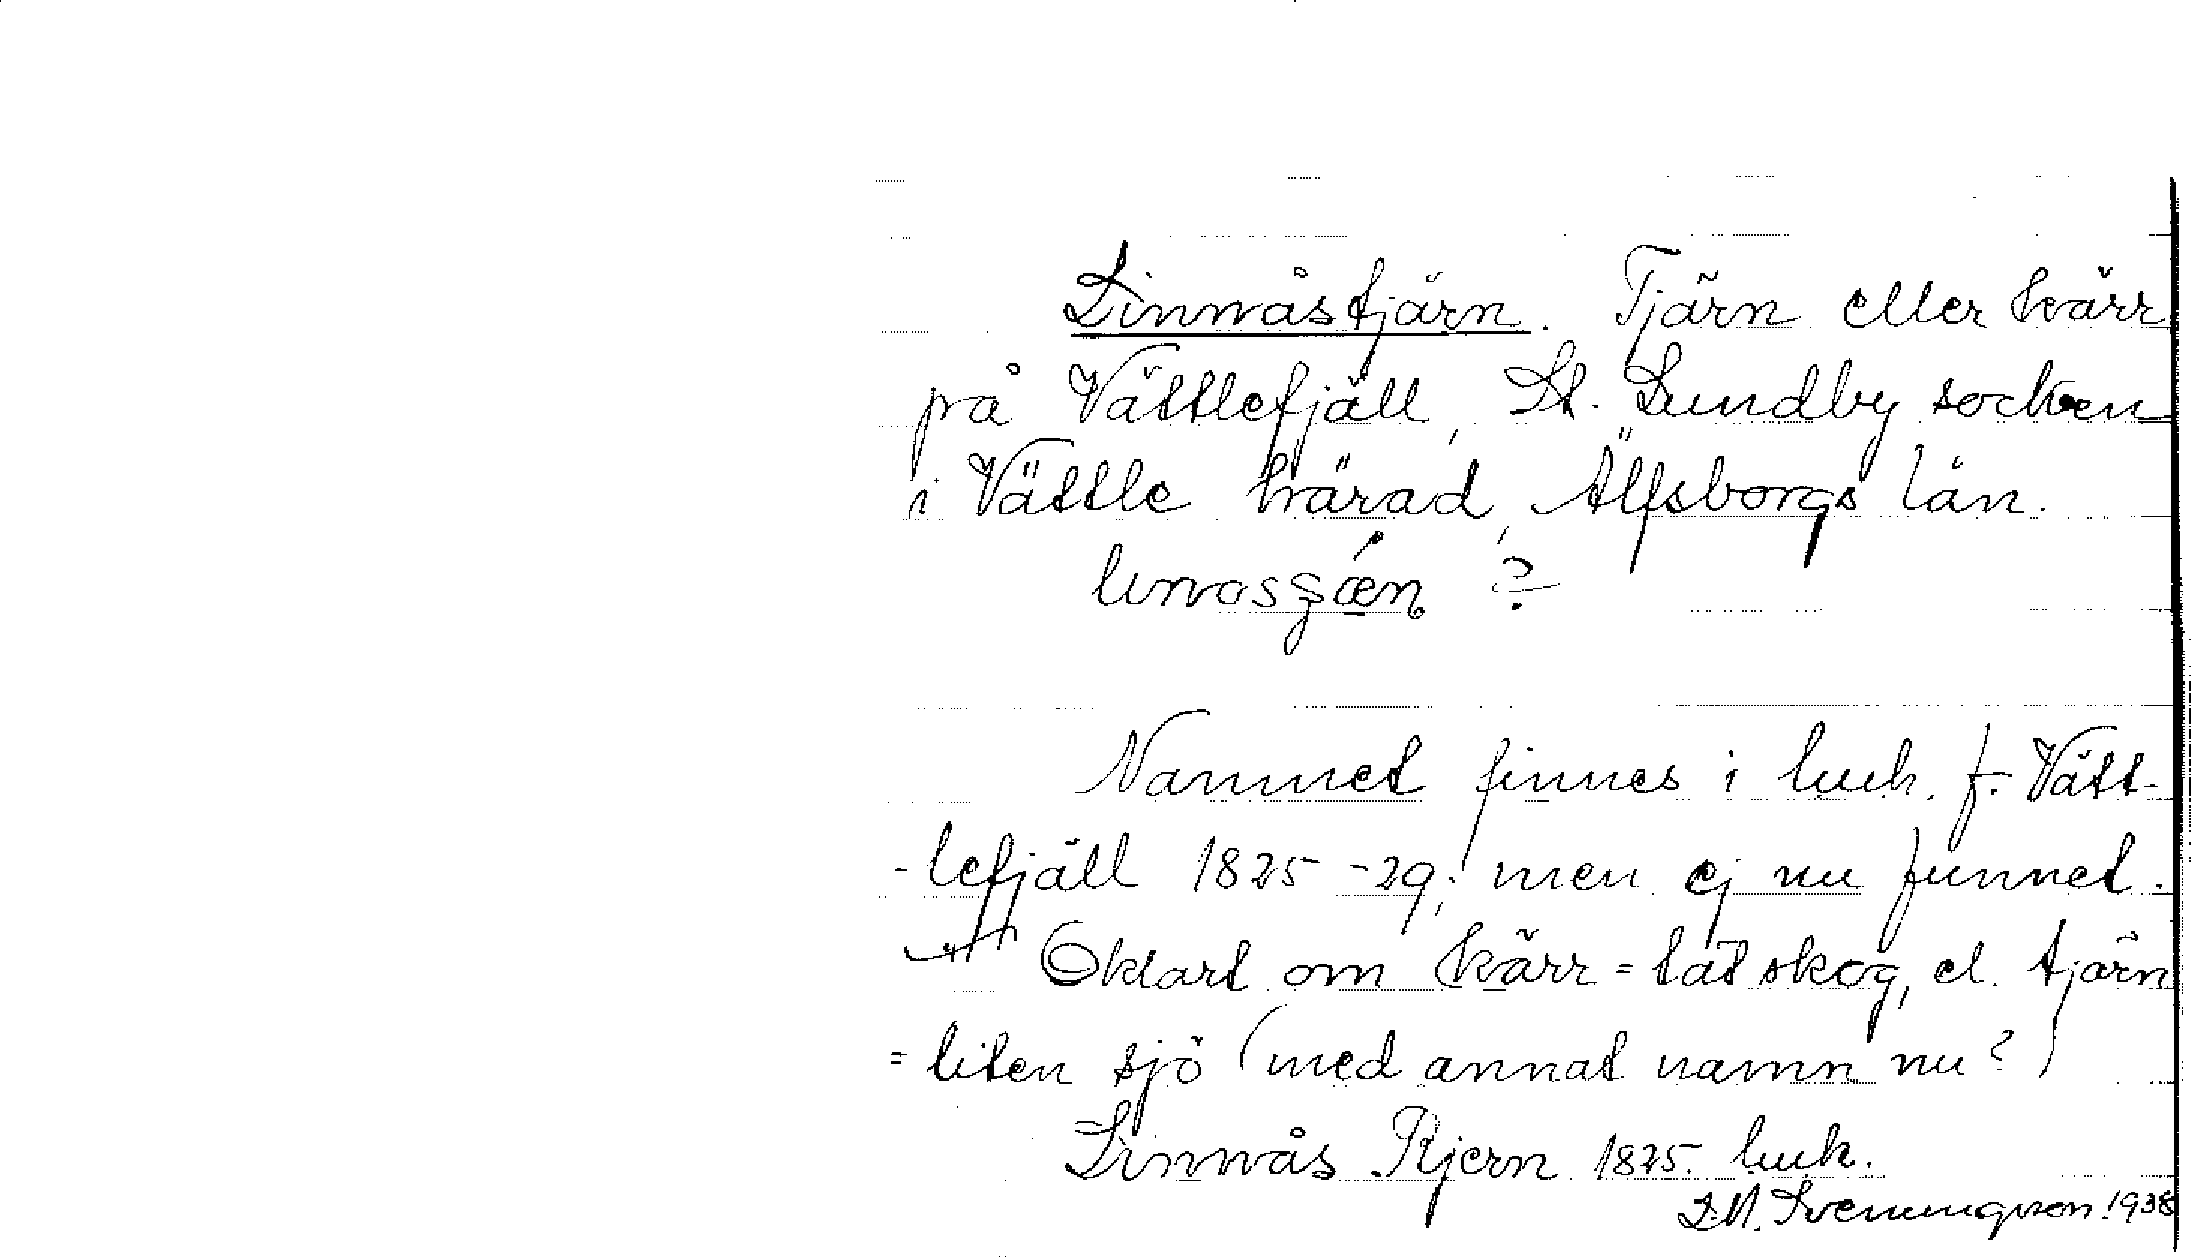 Linnåstjärn. Tjärn eller kärr
på Vättlefjäll, St. Lundby socken
i Vättle härad, Älfsborgs län.
?
Namnet finnes i luk. f. Vätt-
-lefjäll 1825-29; men ej nu funnet.
Oklart om kärr = tät skog, el. tjärn
= liten sjö (med annat namn nu?)
Linnås Kjern 1825. luk.
1938